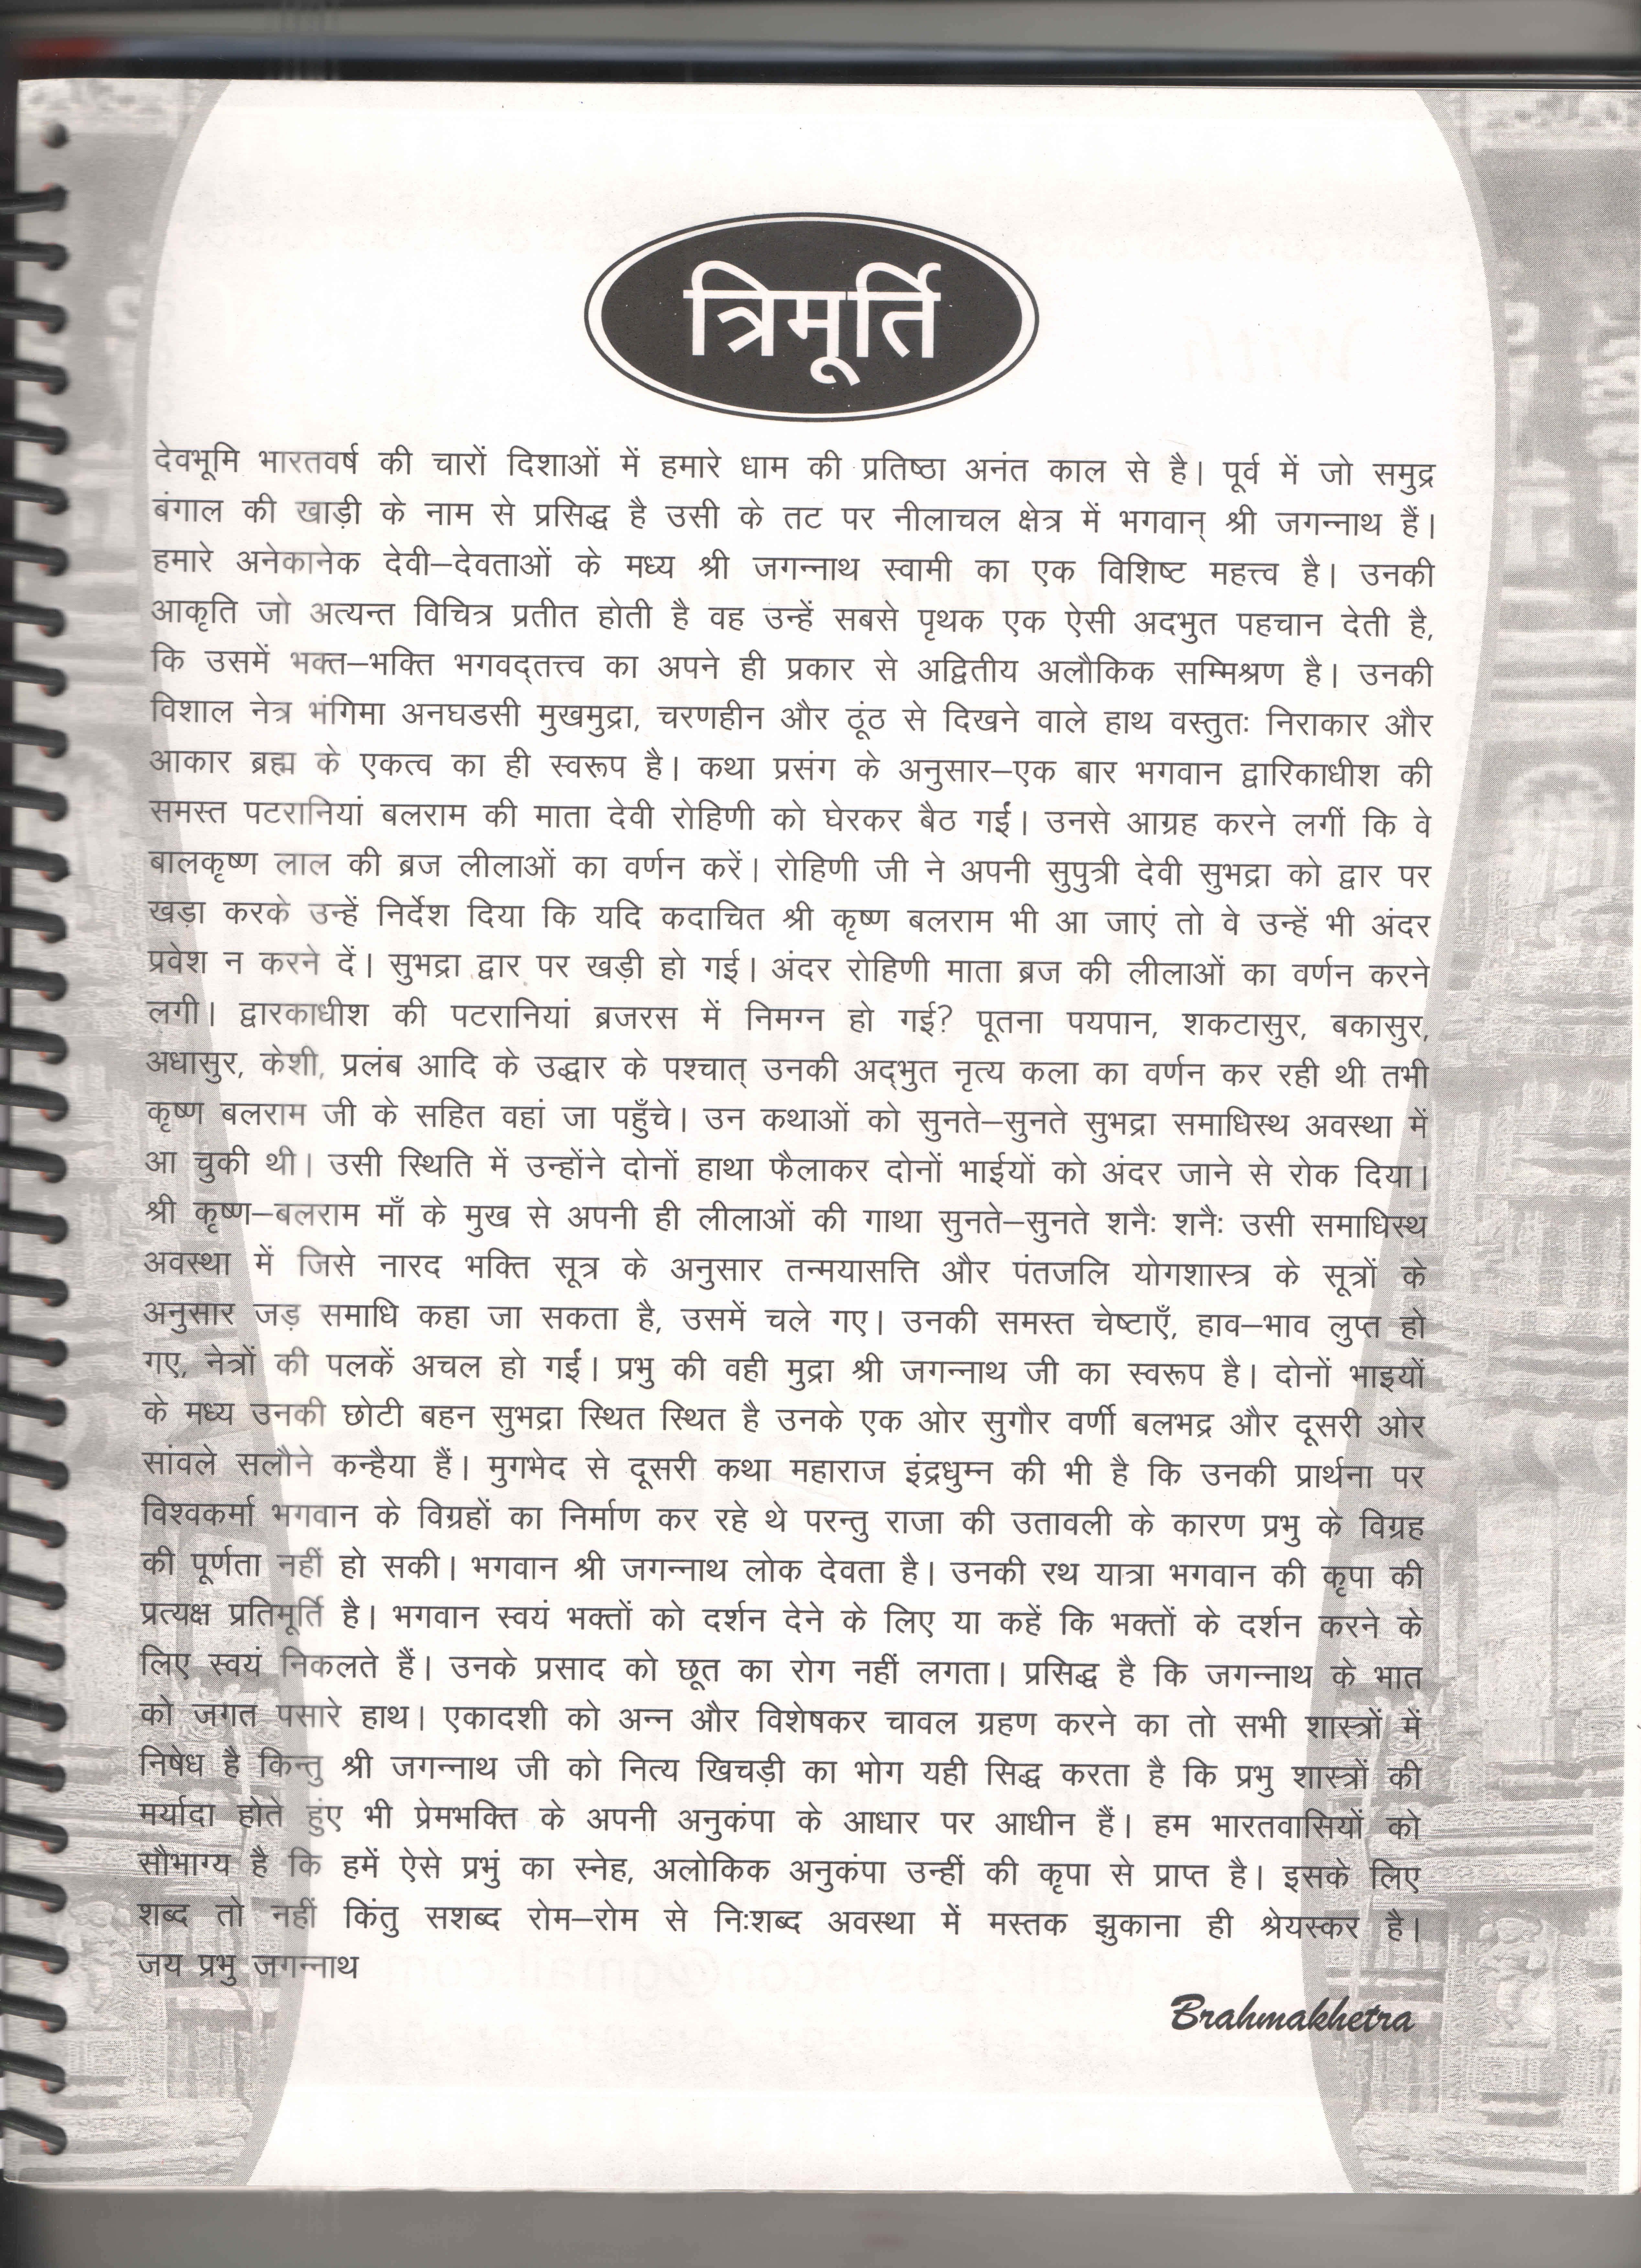 त्रिमूर्ति
देवभूमि भारतवर्ष की चारों दिशाओं में हमारे धाम की प्रतिष्ठा अनंत काल से है। पूर्व में जो समुद्र
बंगाल की खाड़ी के नाम से प्रसिद्ध है उसी के तट पर नीलाचल क्षेत्र में भगवान् श्री जगन्नाथ हैं।
हमारे अनेकानेक देवी–देवताओं के मध्य श्री जगन्नाथ स्वामी का एक विशिष्ट महत्त्व है। उनकी
आकृति जो अत्यन्त विचित्र प्रतीत होती है वह उन्हें सबसे पृथक एक ऐसी अदभुत पहचान देती है,
कि उसमें भक्त–भक्ति भगवद्तत्त्व का अपने ही प्रकार से अद्वितीय अलौकिक सम्मिश्रण है। उनकी
विशाल नेत्र भंगिमा अनघडसी मुखमुद्रा, चरणहीन और ठूंठ से दिखने वाले हाथ वस्तुतः निराकार और
आकार ब्रह्म के एकत्व का ही स्वरूप है। कथा प्रसंग के अनुसार–एक बार भगवान द्वारिकाधीश की
समस्त पटरानियां बलराम की माता देवी रोहिणी को घेरकर बैठ गईं। उनसे आग्रह करने लगीं कि वे
बालकृष्ण लाल की ब्रज लीलाओं का वर्णन करें। रोहिणी जी ने अपनी सुपुत्री देवी सुभद्रा को द्वार पर
खड़ा करके उन्हें निर्देश दिया कि यदि कदाचित श्री कृष्ण बलराम भी आ जाएं तो वे उन्हें भी अंदर
प्रवेश न करने दें। सुभद्रा द्वार पर खड़ी हो गई। अंदर रोहिणी माता ब्रज की लीलाओं का वर्णन करने
लगी। द्वारकाधीश की पटरानियां ब्रजरस में निमग्न हो गई? पूतना पयपान, शकटासुर, बकासुर,
अधासुर, केशी, प्रलंब आदि के उद्धार के पश्चात् उनकी अद्‌भुत नृत्य कला का वर्णन कर रही थी तभी
कृष्ण बलराम जी के सहित वहां जा पहुँचे। उन कथाओं को सुनते–सुनते सुभद्रा समाधिस्थ अवस्था में
आ चुकी थी। उसी स्थिति में उन्होंने दोनों हाथा फैलाकर दोनों भाईयों को अंदर जाने से रोक दिया।
श्री कृष्ण–बलराम माँ के मुख से अपनी ही लीलाओं की गाथा सुनते–सुनते शनैः शनैः उसी समाधिस्थ
अवस्था में जिसे नारद भक्ति सूत्र के अनुसार तन्मयासत्ति और पंतजलि योगशास्त्र के सूत्रों के
अनुसार जड़ समाधि कहा जा सकता है, उसमें चले गए। उनकी समस्त चेष्टाएँ, हाव–भाव लुप्त हो
गए, नेत्रों की पलकें अचल हो गईं। प्रभु की वही मुद्रा श्री जगन्नाथ जी का स्वरूप है। दोनों भाइयों
के मध्य उनकी छोटी बहन सुभद्रा स्थित स्थित है उनके एक ओर सुगौर वर्णी बलभद्र और दूसरी ओर
सांवले सलौने कन्हैया हैं। मुगभेद से दूसरी कथा महाराज इंद्रधुम्न की भी है कि उनकी प्रार्थना पर
विश्वकर्मा भगवान के विग्रहों का निर्माण कर रहे थे परन्तु राजा की उतावली के कारण प्रभु के विग्रह
की पूर्णता नहीं हो सकी। भगवान श्री जगन्नाथ लोक देवता है। उनकी रथ यात्रा भगवान की कृपा की
प्रत्यक्ष प्रतिमूर्ति है। भगवान स्वयं भक्तों को दर्शन देने के लिए या कहें कि भक्तों के दर्शन करने के
लिए स्वयं निकलते हैं। उनके प्रसाद को छूत का रोग नहीं लगता। प्रसिद्ध है कि जगन्नाथ के भात
को जगत पसारे हाथ। एकादशी को अन्न और विशेषकर चावल ग्रहण करने का तो सभी शास्त्रों में
निषेध है किन्तु श्री जगन्नाथ जी को नित्य खिचड़ी का भोग यही सिद्ध करता है कि प्रभु शास्त्रों की
मर्यादा होते हुंए भी प्रेमभक्ति के अपनी अनुकंपा के आधार पर आधीन हैं। हम भारतवासियों को
सौभाग्य है कि हमें ऐसे प्रभुं का स्नेह, अलोकिक अनुकंपा उन्हीं की कृपा से प्राप्त है। इसके लिए
शब्द तो नहीं किंतु सशब्द रोम–रोम से निःशब्द अवस्था में मस्तक झुकाना ही श्रेयस्कर है।
जय प्रभु जगन्नाथ
Brahmakhetra